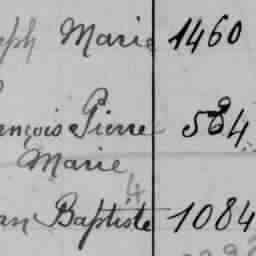 eph Marie 1460
ançois Pierre 584
Marie
4
an Baptiste 1084